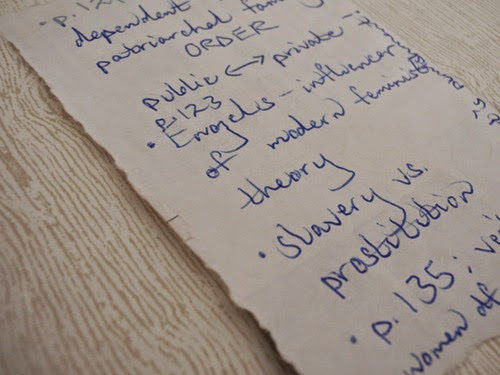 • p. 12
dependent
patriarchal fam
ORDER
public ↔ private -
p. 123
• Engels - influencer
of modern feminist
theory
• slavery vs.
prostitution
• p. 135:
women of